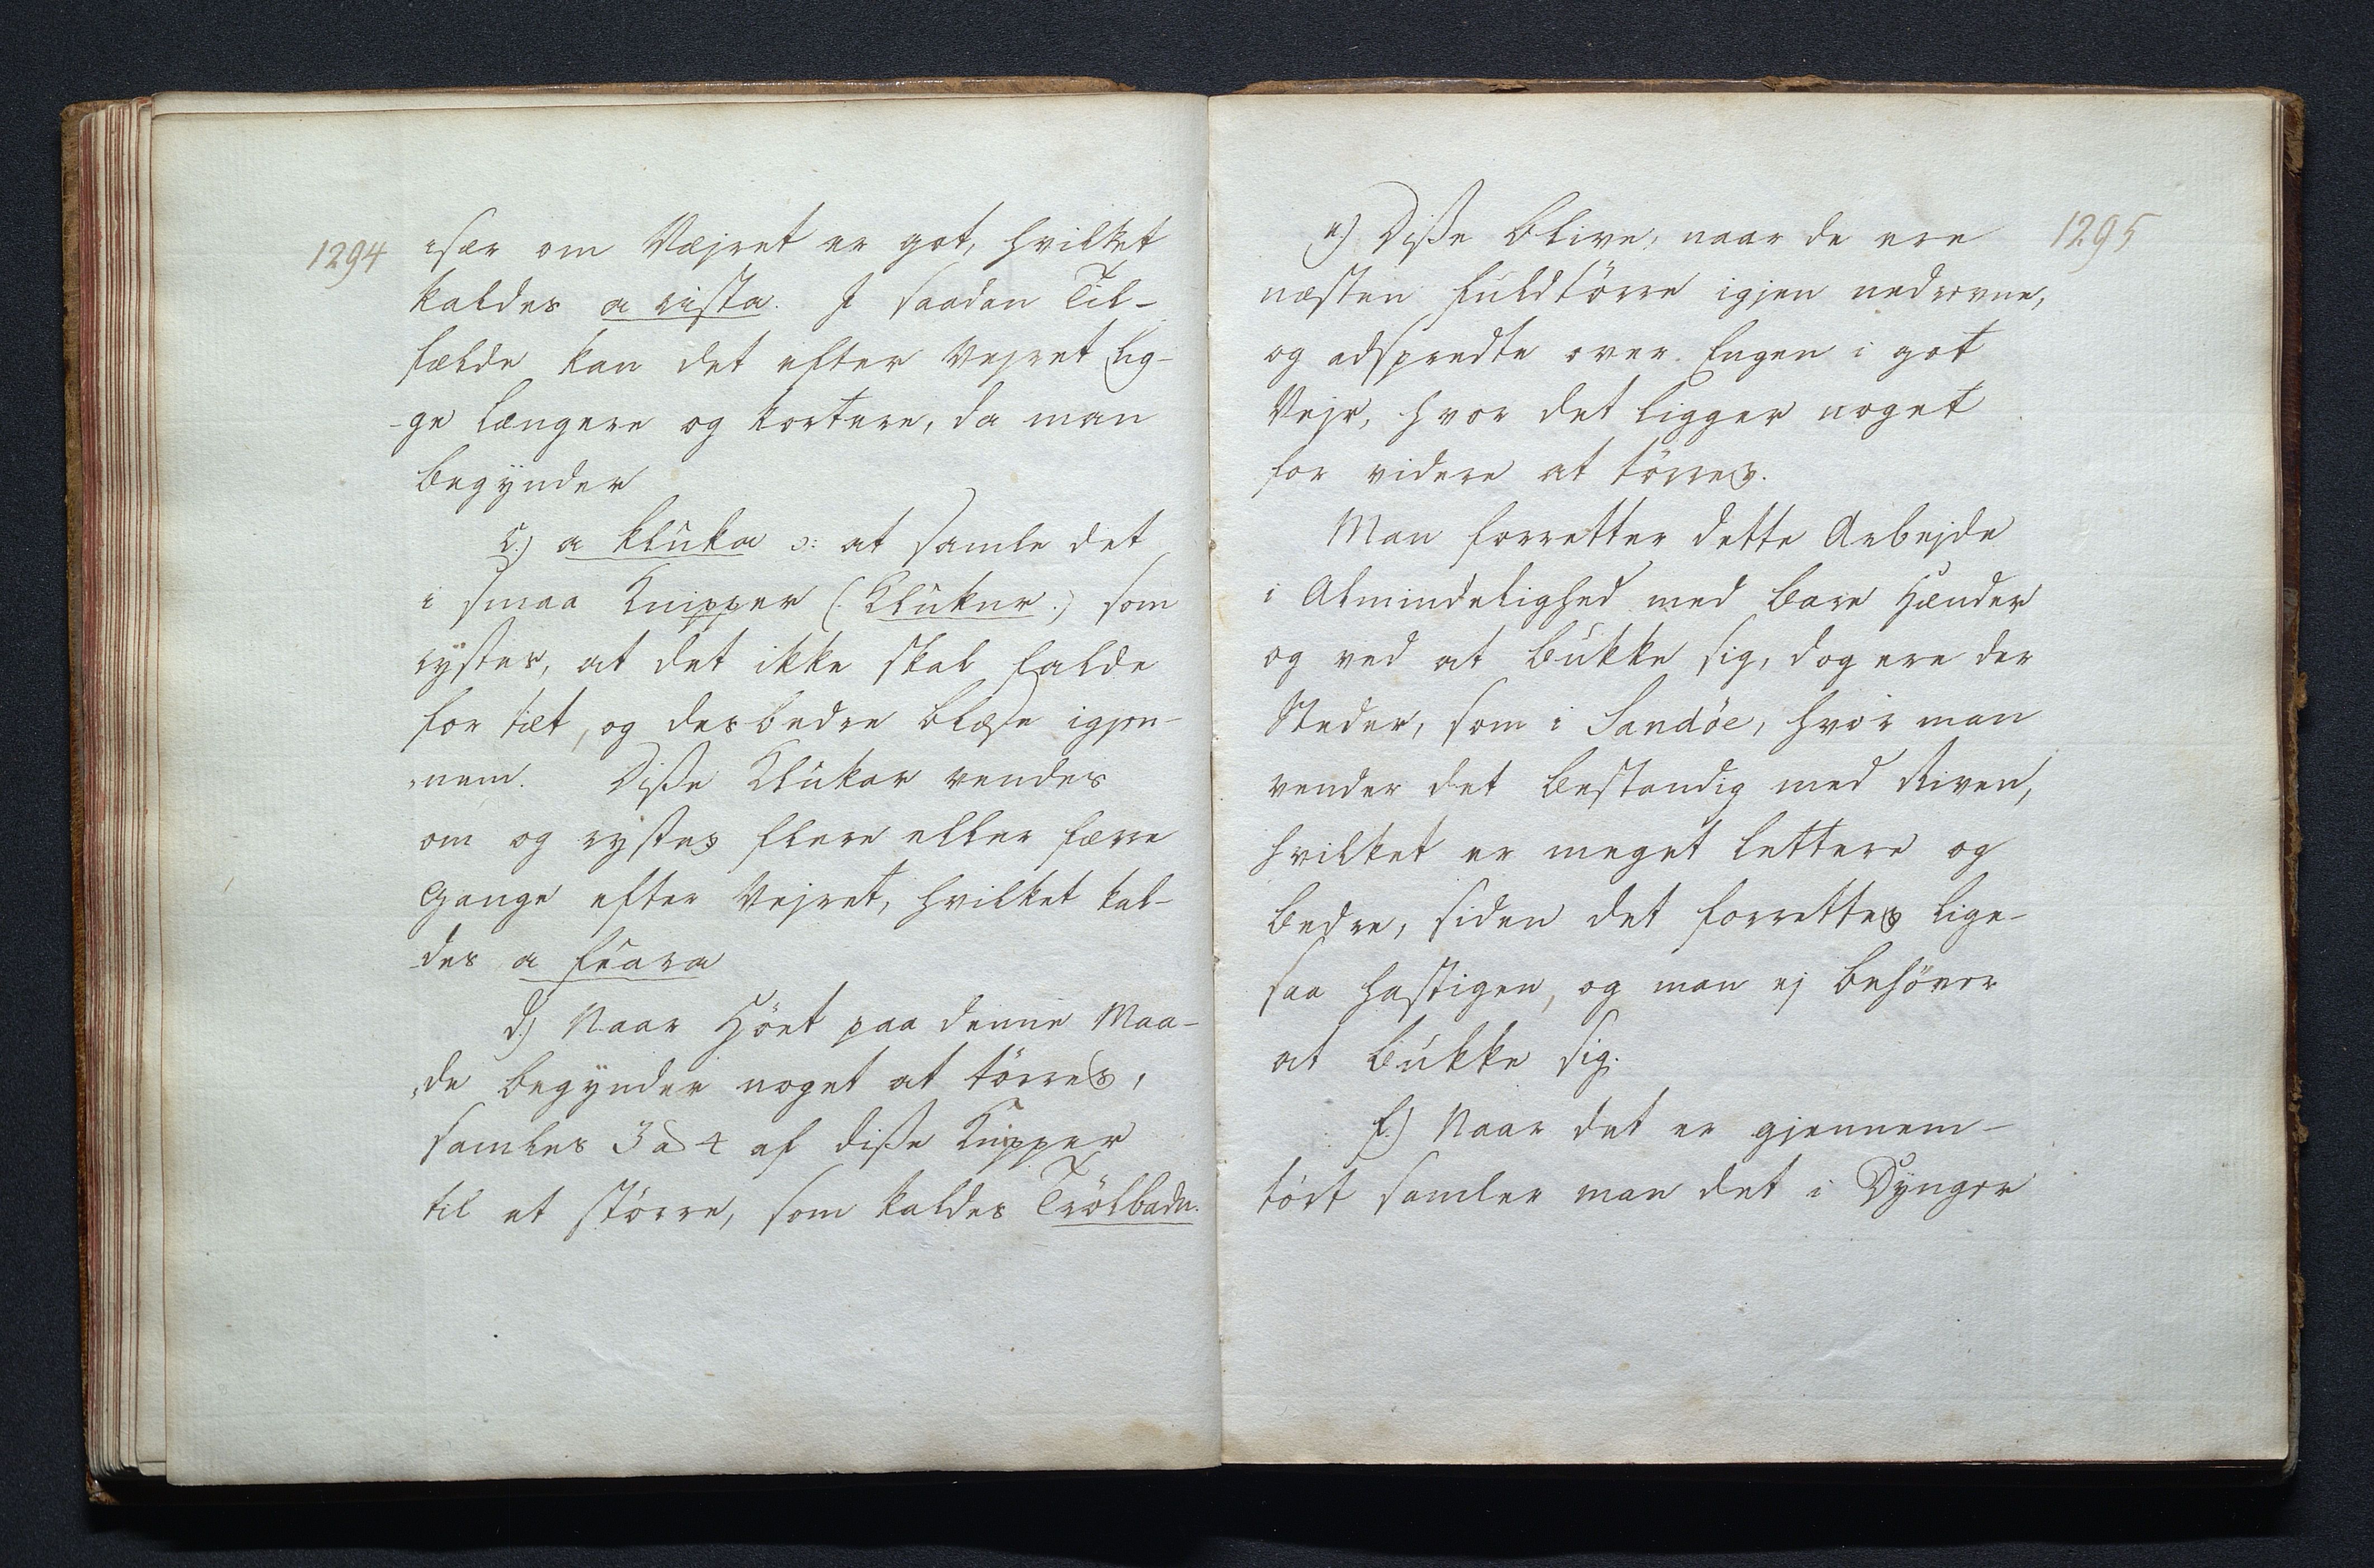 1294
især om Vejret er got, hvilket
kaldes a rista. I saadan Til-
fælde kan det efter Vejret lig-
-ge længere og kortere, da man
begÿnder
c.) a kluka ɔ: at samle det
i smaa Knipper (: Klukur :) som
rÿstes, at det ikke skal falde
for tæt, og des bedre blæse igjen-
-nem. Disse Klukar vendes
om og rÿstes flere eller færre
Gange efter Vejret, hvilket kal-
-des a fruara
d.) Naar Höet paa denne Maa-
-de begÿnder noget at törres,
samles 3 à 4 af disse Knipper
til et större, som kaldes Tröllbadn.
e.) Disse blive, naar de ere
næsten fuldtörre igjen nedrevne,
og adspredte over Engen i got
Vejr, hvor det ligger noget
for videre at törres.
Man forretter dette Arbejde
i Almindelighed med bare Hænder
og ved at bukke sig, dog ere der
Steder, som i Sandöe, hvor man
vender det bestandig med Riven,
hvilket er meget lettere og
bedre, siden det forrettes lige-
saa hastigen, og man ej behöver
at bukke sig.
f.) Naar det er gjennem-
tört samler man det i Dÿnger
1295